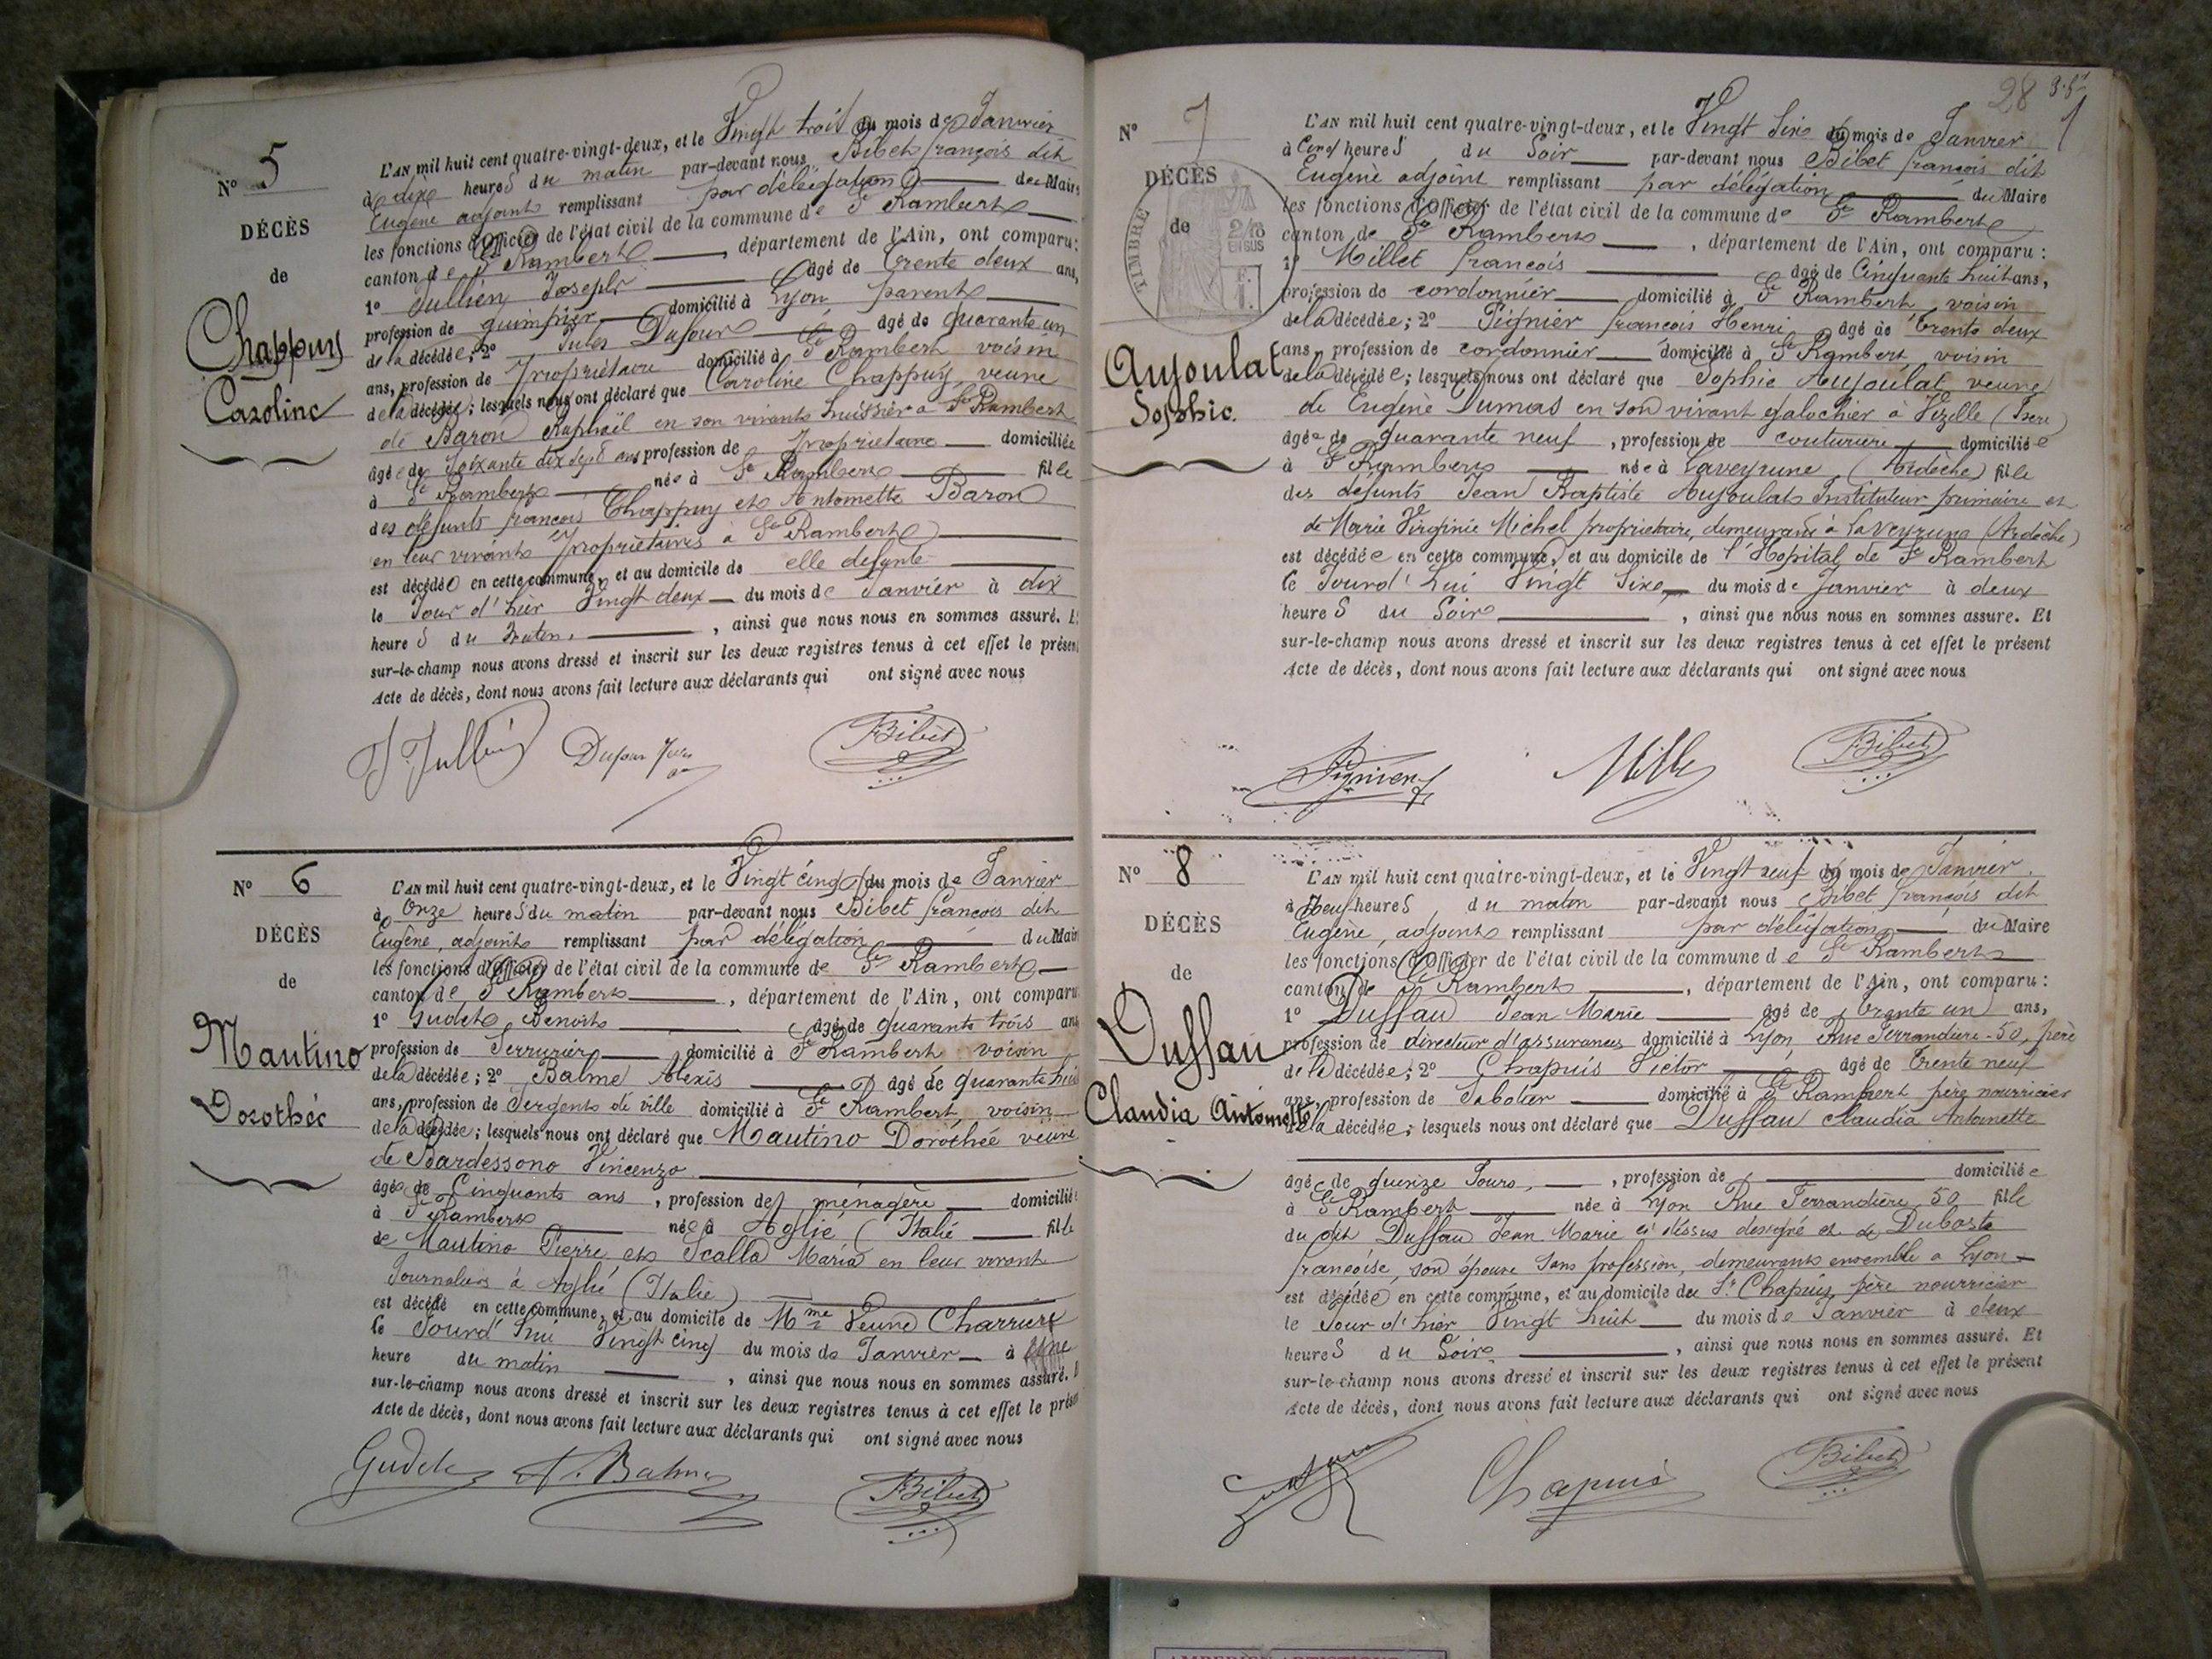 N° 5
DÉCÈS
de
Chappuy
Caroline
L'AN mil huit cent quatre-vingt-deux, et le Vingt trois du mois de Janvier
à dix heures du matin par-devant nous Bibet françois dit
Eugène adjoint remplissant par délégation du Maire
les fonctions d'Officier de l'état civil de la commune de St Rambert
canton de St Rambert, département de l'Ain, ont comparu :
1° Jullien Joseph âgé de trente deux ans,
profession de guimpier domicilié à Lyon parent
de la décédée ; 2° Jules Dufour âgé de quarante un
ans, profession de propriétaire domicilié à St Rambert voisin
de la décédée ; lesquels nous ont déclaré que Caroline Chappuy, veuve
de Baron Raphaël en son vivant huissier à St Rambert
âgée de soixante dix sept ans profession de propriétaire domiciliée
à St Rambert née à St Rambert fille
des défunts françois Chappuy et Antoinette Baron
en leur vivant propriétaires à St Rambert
est décédée en cette commune, et au domicile de elle défunte
le Jour d'hier Vingt deux du mois de Janvier à dix
heures du matin, ainsi que nous nous en sommes assuré. Et
sur-le-champ nous avons dressé et inscrit sur les deux registres tenus à cet effet le présent
Acte de décès, dont nous avons fait lecture aux déclarants qui ont signé avec nous
J. Jullien Dufour Jules Bibet
N° 6
DÉCÈS
de
Mautino
Dorothée
L'AN mil huit cent quatre-vingt-deux, et le Vingt cinq du mois de Janvier
à Onze heures du matin par-devant nous Bibet françois dit
Eugène, adjoint remplissant par délégation du Maire
les fonctions d'Officier de l'état civil de la commune de St Rambert
canton de St Rambert, département de l'Ain, ont comparu
1° Gudet Benoit âgé de quarante trois ans
profession de Serrurier domicilié à St Rambert voisin
de la décédée ; 2° Balme Alexis âgé de quarante huit
ans, profession de Sergent de ville domicilié à St Rambert, voisin
de la décédée ; lesquels nous ont déclaré que Mautino Dorothée veuve
de Bardessono Vincenzo
âgée de Cinquante ans, profession de ménagère domiciliée
à St Rambert née à Aglié (Italie fille
de Mautino Pierre et Scalla Maria en leur vivant
Journaliers à Aglié (Italie)
est décédé en cette commune, et au domicile de Mme Veuve Charriere
le Jourd'hui Vingt cinq du mois de Janvier à une
heure du matin, ainsi que nous nous en sommes assuré.
sur-le-champ nous avons dressé et inscrit sur les deux registres tenus à cet effet le présen
Acte de décès, dont nous avons fait lecture aux déclarants qui ont signé avec nous
Gudet A. Balme Bibet
28
N° 7
DÉCÈS
de
TIMBRE
2/10
EN SUS
Aujoulat
Sophie.
L'AN mil huit cent quatre-vingt-deux, et le Vingt Six du mois de Janvier
à Cinq heures du Soir par-devant nous Bibet françois dit
Eugène adjoint remplissant par délégation du Maire
les fonctions d'Officier de l'état civil de la commune de St Rambert
canton de St Rambert, département de l'Ain, ont comparu :
1° Millet françois âgé de Cinquante huit ans,
profession de cordonnier domicilié à St Rambert voisin
de la décédée ; 2° Pignier françois Henri âgé de trente deux
ans, profession de cordonnier domicilié à St Rambert, voisin
de la décédée ; lesquels nous ont déclaré que Sophie Aujoulat, veuve
de Eugène Dumas en son vivant galochier à Vizille (Isère)
âgée de quarante neuf, profession de couturière domiciliée
à St Rambert née à Laveyrune (Ardèche) fille
des défunts Jean Baptiste Aujoulat Instituteur primaire et
de Marie Virginie Michel propriétaire, demeurant à Laveyrune (Ardèche)
est décédée en cette commune, et au domicile de l'Hopital de St Rambert
le Jourd'hui Vingt Six du mois de Janvier à deux
heures du Soir, ainsi que nous nous en sommes assuré. Et
sur-le-champ nous avons dressé et inscrit sur les deux registres tenus à cet effet le présent
Acte de décès, dont nous avons fait lecture aux déclarants qui ont signé avec nous
Pignier Bibet
N° 8
DÉCÈS
de
Duffau
Claudia Antoinette
L'AN mil huit cent quatre-vingt-deux, et le Vingt neuf du mois de Janvier
à Neuf heures du matin par-devant nous Bibet françois dit
Eugène, adjoint remplissant par délégation du Maire
les fonctions d'Officier de l'état civil de la commune de St Rambert
canton de St Rambert, département de l'Ain, ont comparu :
1° Duffau Jean Marie âgé de trente un ans,
profession de directeur d'assurances domicilié à Lyon, Rue Ferrandière - 50, père
de la décédée ; 2° Chapuis Victor âgé de trente neuf
ans, profession de Sabotier domicilié à St Rambert père nourricier
de la décédée ; lesquels nous ont déclaré que Duffau Claudia Antoinette
âgée de quinze Jours, profession de domiciliée
à St Rambert née à Lyon Rue Ferrandière 50 fille
du dit Duffau Jean Marie ci dessus désigné et de Duboste
françoise, son épouse sans profession, demeurant ensemble à Lyon
est décédée en cette commune, et au domicile du Sr Chapuis, père nourricier
le Jour d'hier Vingt huit du mois de Janvier à deux
heures du Soir, ainsi que nous nous en sommes assuré. Et
sur-le-champ nous avons dressé et inscrit sur les deux registres tenus à cet effet le présent
Acte de décès, dont nous avons fait lecture aux déclarants qui ont signé avec nous
Chapuis Bibet